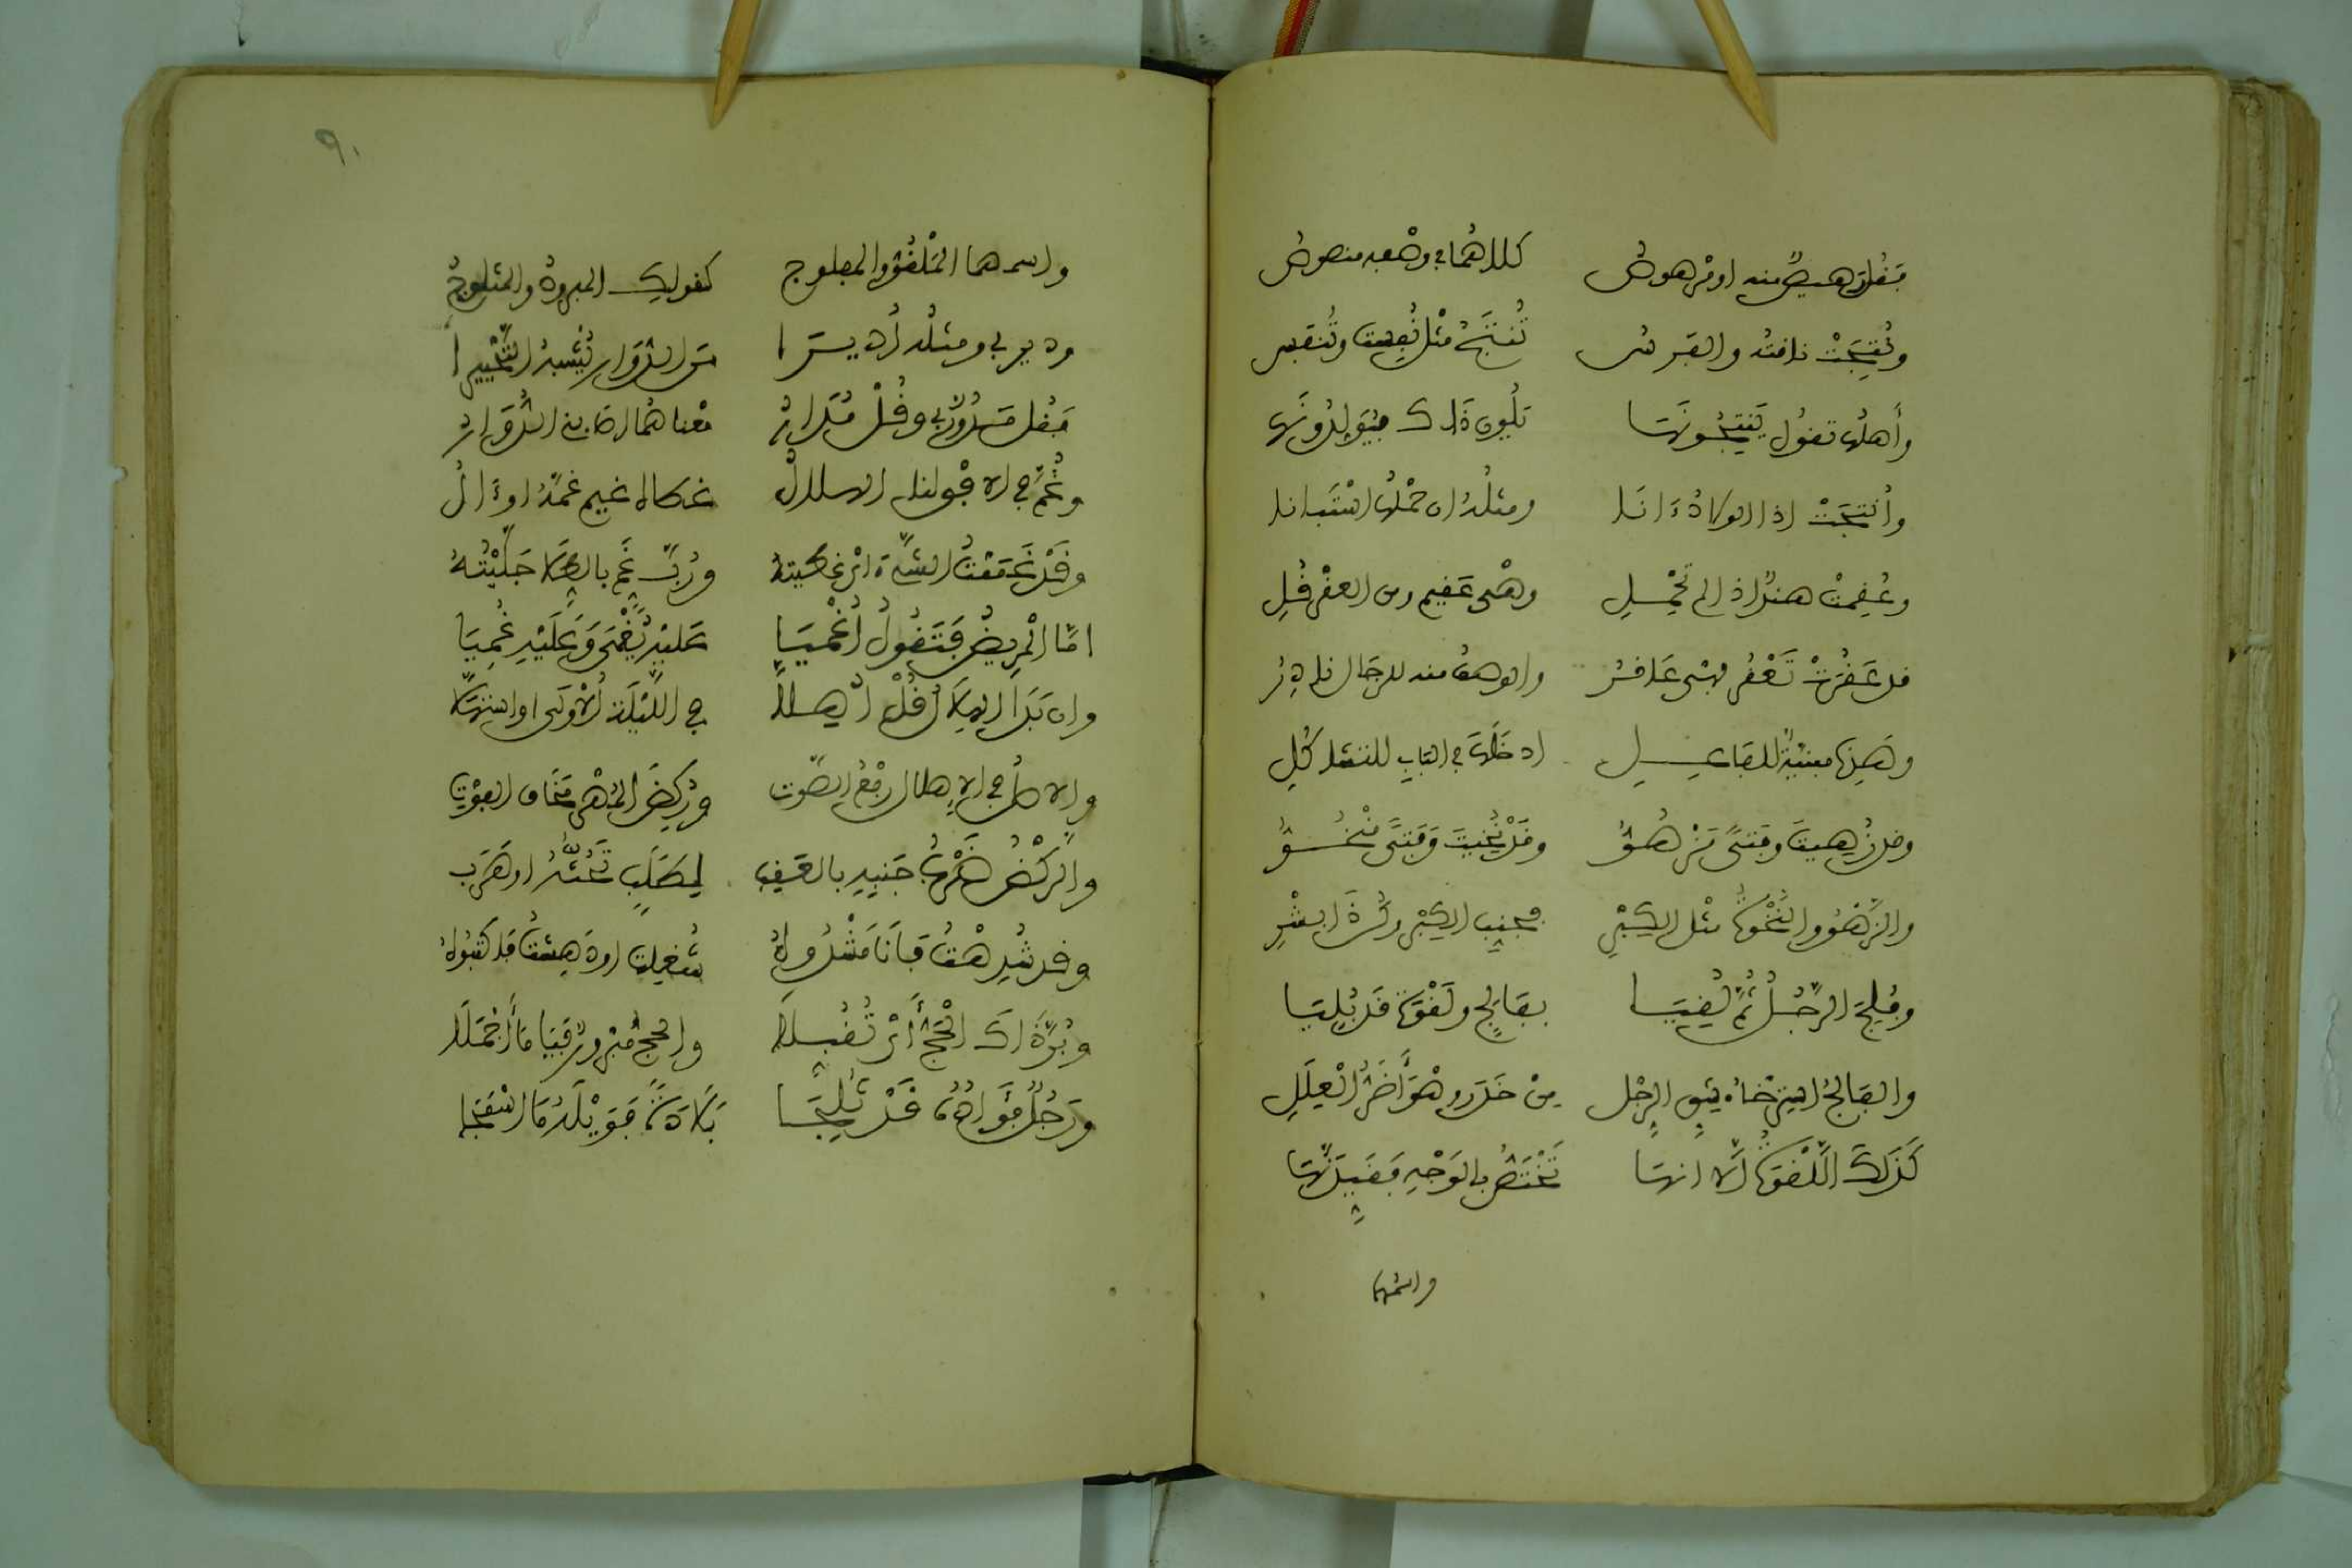 فقل رهيص منه او مرهوص كلاهما في وصفه منصوص
ونتجت ناقته والفرس تنتج مثل نفست وتنفس
وأهلها تقول ينتجونها تلون ذاك فيولدونها
وأنتجت اذا الولاد ءانا ومثله ان حملها استبانا
وعقمت هند اذا لم تحمل وهي عقيم ومن العقر قل
قد عقرت تعقر فهي عاقر والوصف منه للرجال نادر
وهذه مبنية للفاعل ادخلها في الباب للتشاكل
وقد زهيت وفتى مزهو وقد نخيت وفتى منخو
والزهو والنخوة مثل الكبر فجنب الكبر وكن ذا بشر
وفلج الرجل ثم لقيا بفالج ولقوة قد بليا
والفالج استرخاء شق الرجل من خدر وهو أضر العلل
كذلك اللقوة لا انها تختص بالوجه فقيدنها
واسمها
٩٠
واسمهما الملقو والمفلوج كقولك المبرود والمثلوج
ودير بي ومثله أديرا من الدوار يشبه التحييرا
فقل مدور بي وقل مدار معناهما اصابه الدوار
وغم في الافق لنا الهلال غطاه غيم غمه او ءال
وقد غممت الشيء اذ غطيته ورب غم بالعطا جليته
اما المريض فتقول أغميا عليه يغمى وعليه غميا
وان بدا الهلال قل أهلا في الليلة الأولى او استهلا
والاصل في الاهلال رفع الصوت وركض المهر مخاف الفوت
والركض ضرب جنبه بالعقب لطلب تحثه او هرب
وقد شدهت فأنا مشدوه شغلت او دهشت قد كتبوه
وبر ذاك الحج أي تقبلا والحج مبرور فيا ما أجملا
ورجل فؤاده قد ثلجا بلادة فويله ما استفجا